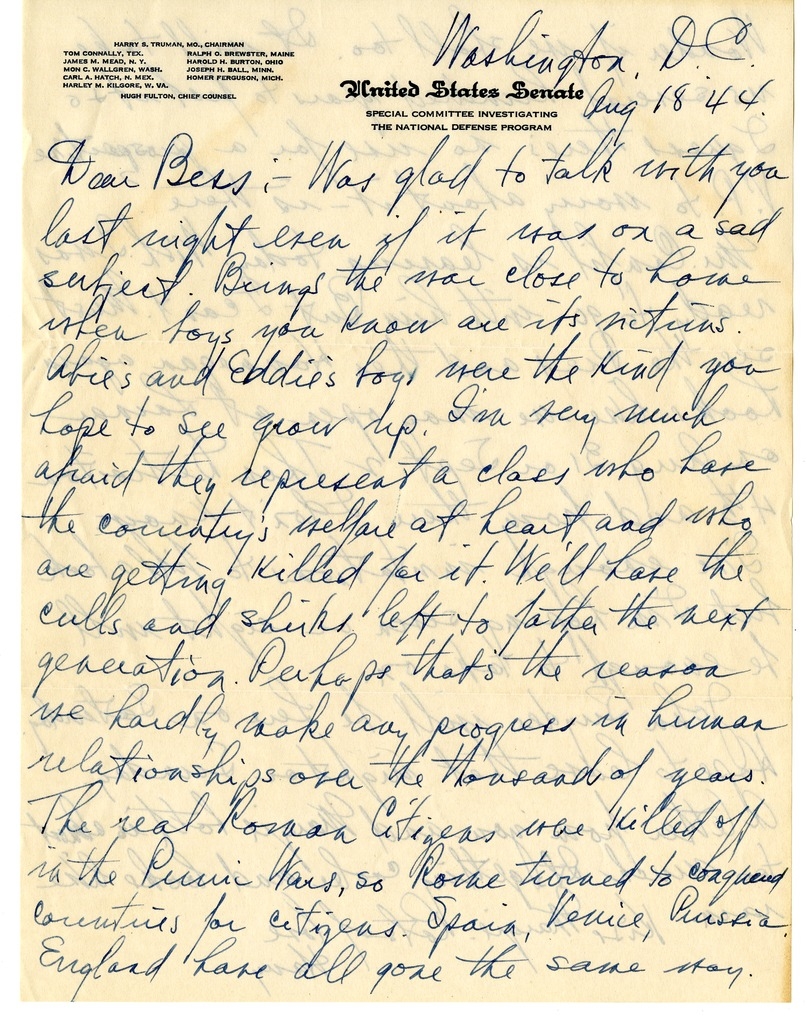 HARRY S. TRUMAN, MO., CHAIRMAN
TOM CONNALLY, TEX. RALPH O. BREWSTER, MAINE
JAMES M. MEAD, N. Y. HAROLD H. BURTON, OHIO
MON C. WALLGREN, WASH. JOSEPH H. BALL, MINN.
CARL A. HATCH, N. MEX. HOMER FERGUSON, MICH.
HARLEY M. KILGORE, W. VA.
HUGH FULTON, CHIEF COUNSEL
Washington, D.C.
United States Senate
Aug 18 44.
SPECIAL COMMITTEE INVESTIGATING
THE NATIONAL DEFENSE PROGRAM
Dear Bess;- Was glad to talk with you
last night even if it was on a sad
subject. Brings the war close to home
when boys you know are its victims.
Abie's and Eddie's boys were the kind you
hope to see grow up. I'm very much
afraid they represent a class who have
the country's welfare at heart and who
are getting killed for it. We'll have the
culls and shirks left to father the next
generation. Perhaps that's the reason
we hardly make any progress in human
relationships over the thousand of years.
The real Roman Citizens were killed off
in the Punic Wars, so Rome turned to conquered
countries for citizens. Spain, Venice, Prussia.
England have all gone the same way.